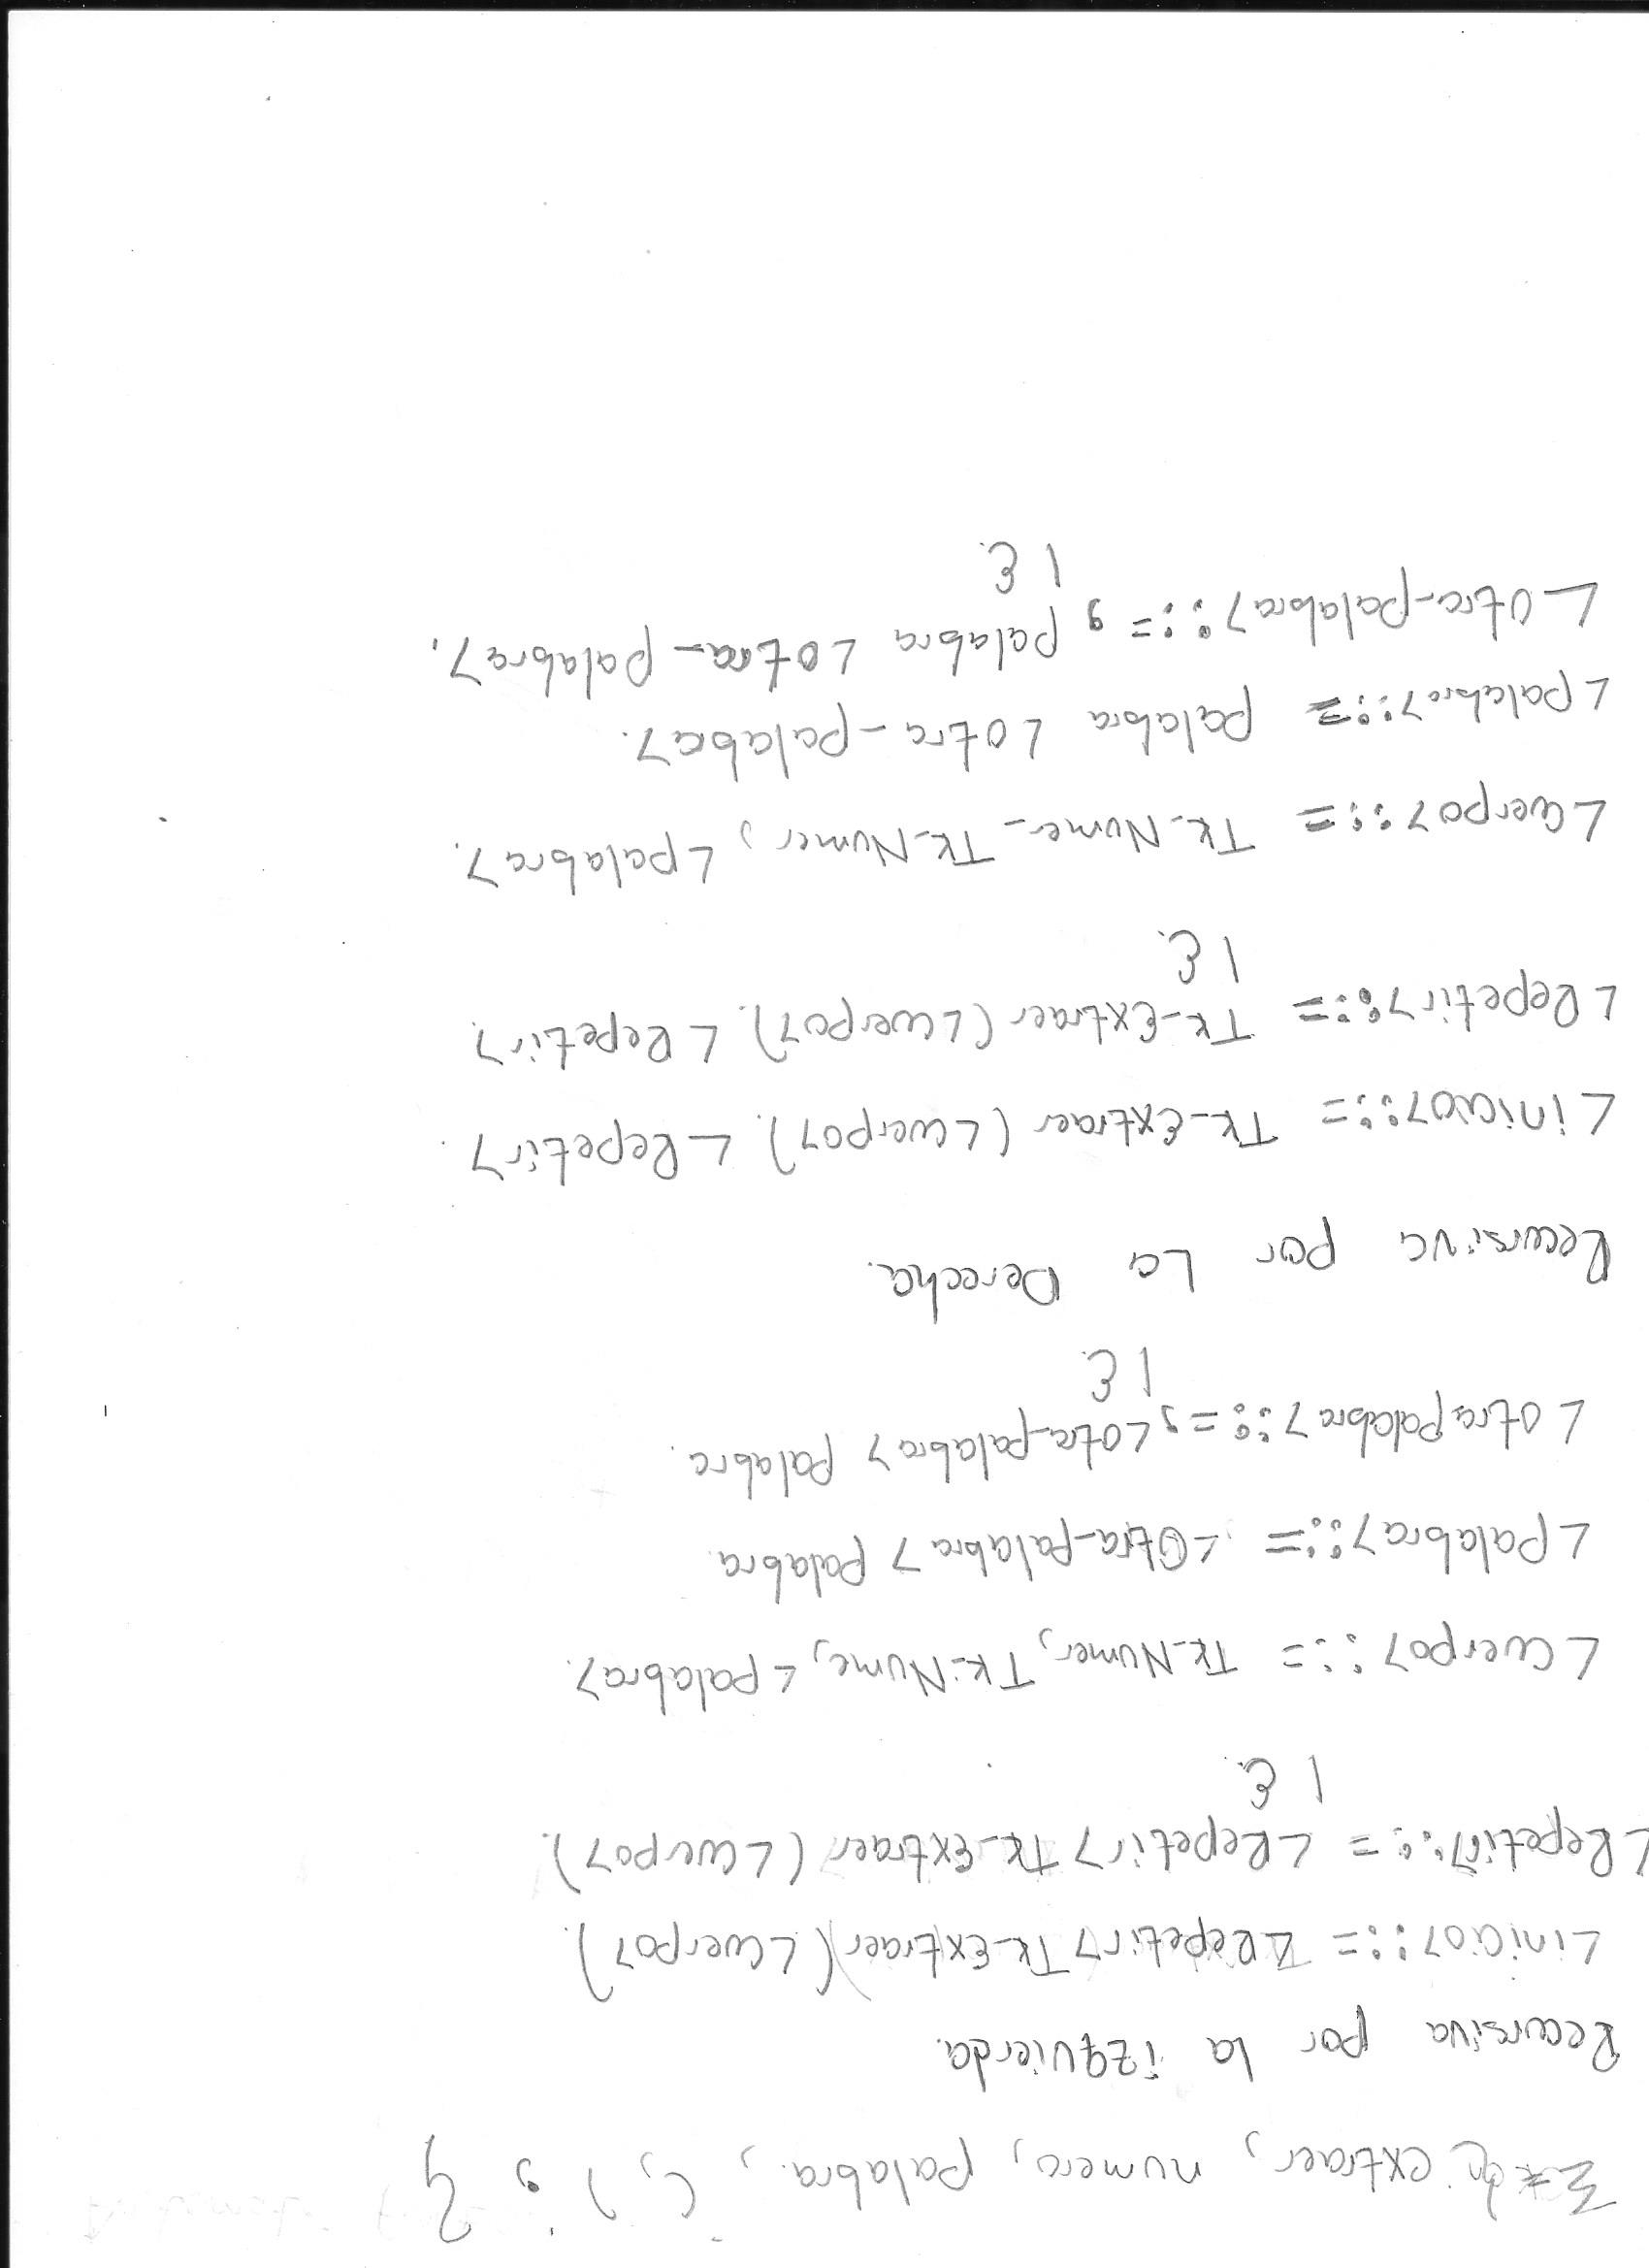 Σ = { extraer, numero, palabra., (, ) , }
Recursiva por la izquierda.
<inicio>::= <Repetir> Tk_Extraer (<Cuerpo>).
<Repetir>::= <Repetir> Tk_Extraer (<Cuerpo>).
| ε.
<Cuerpo>::= Tk_Numer, Tk_Nume, <palabra>.
<Palabra>::= <Otra_palabra> palabra.
<otrapalabra>::= , <otra_palabra> palabra.
| ε.
Recursiva por La Derecha.
<inicio>::= Tk_Extraer (<Cuerpo>). <Repetir>.
<Repetir>::= Tk_Extraer (<Cuerpo>). <Repetir>.
| ε.
<Cuerpo>::= Tk_Numer_ Tk_Numer, <palabra>.
<palabra>::= palabra <otra_palaba>.
<Otra_palabra>::= , palabra <otra_palabra>.
| ε.